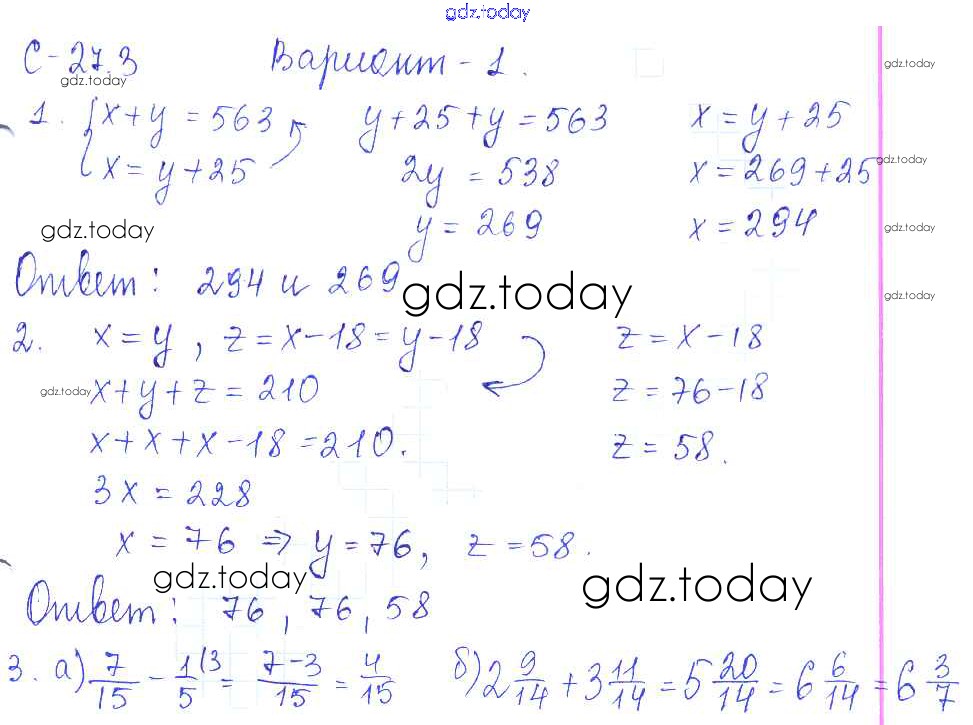 gdz.today
С-27.3 Вариант-1.
gdz.today gdz.today
1. { x+y = 563 y+25+y = 563 x = y+25
x = y+25 2y = 538 x = 269+25 gdz.today
gdz.today y = 269 x = 294 gdz.today
Ответ: 294 и 269 gdz.today gdz.today
2. x = y, z = x-18 = y-18 z = x-18
gdz.today x+y+z = 210 z = 76-18
x+x+x-18 = 210. z = 58.
3x = 228
x = 76 ⇒ y = 76, z = 58.
gdz.today gdz.today
Ответ: 76, 76, 58
3. а) 7/15 - 1/5 (3 = 7-3/15 = 4/15 б) 2 9/14 + 3 11/14 = 5 20/14 = 6 6/14 = 6 3/7